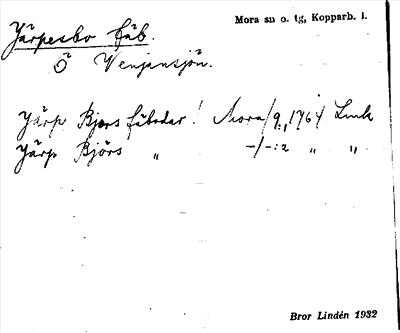 Järpesbo fäb.
Mora sn o. tg, Kopparb. l.
Ö Venjansjön.
Järp Bjers fäbodar! Mora/9:, 1764 Lmk
Järp Björs „ -/-:2 „ „
Bror Lindén 1932